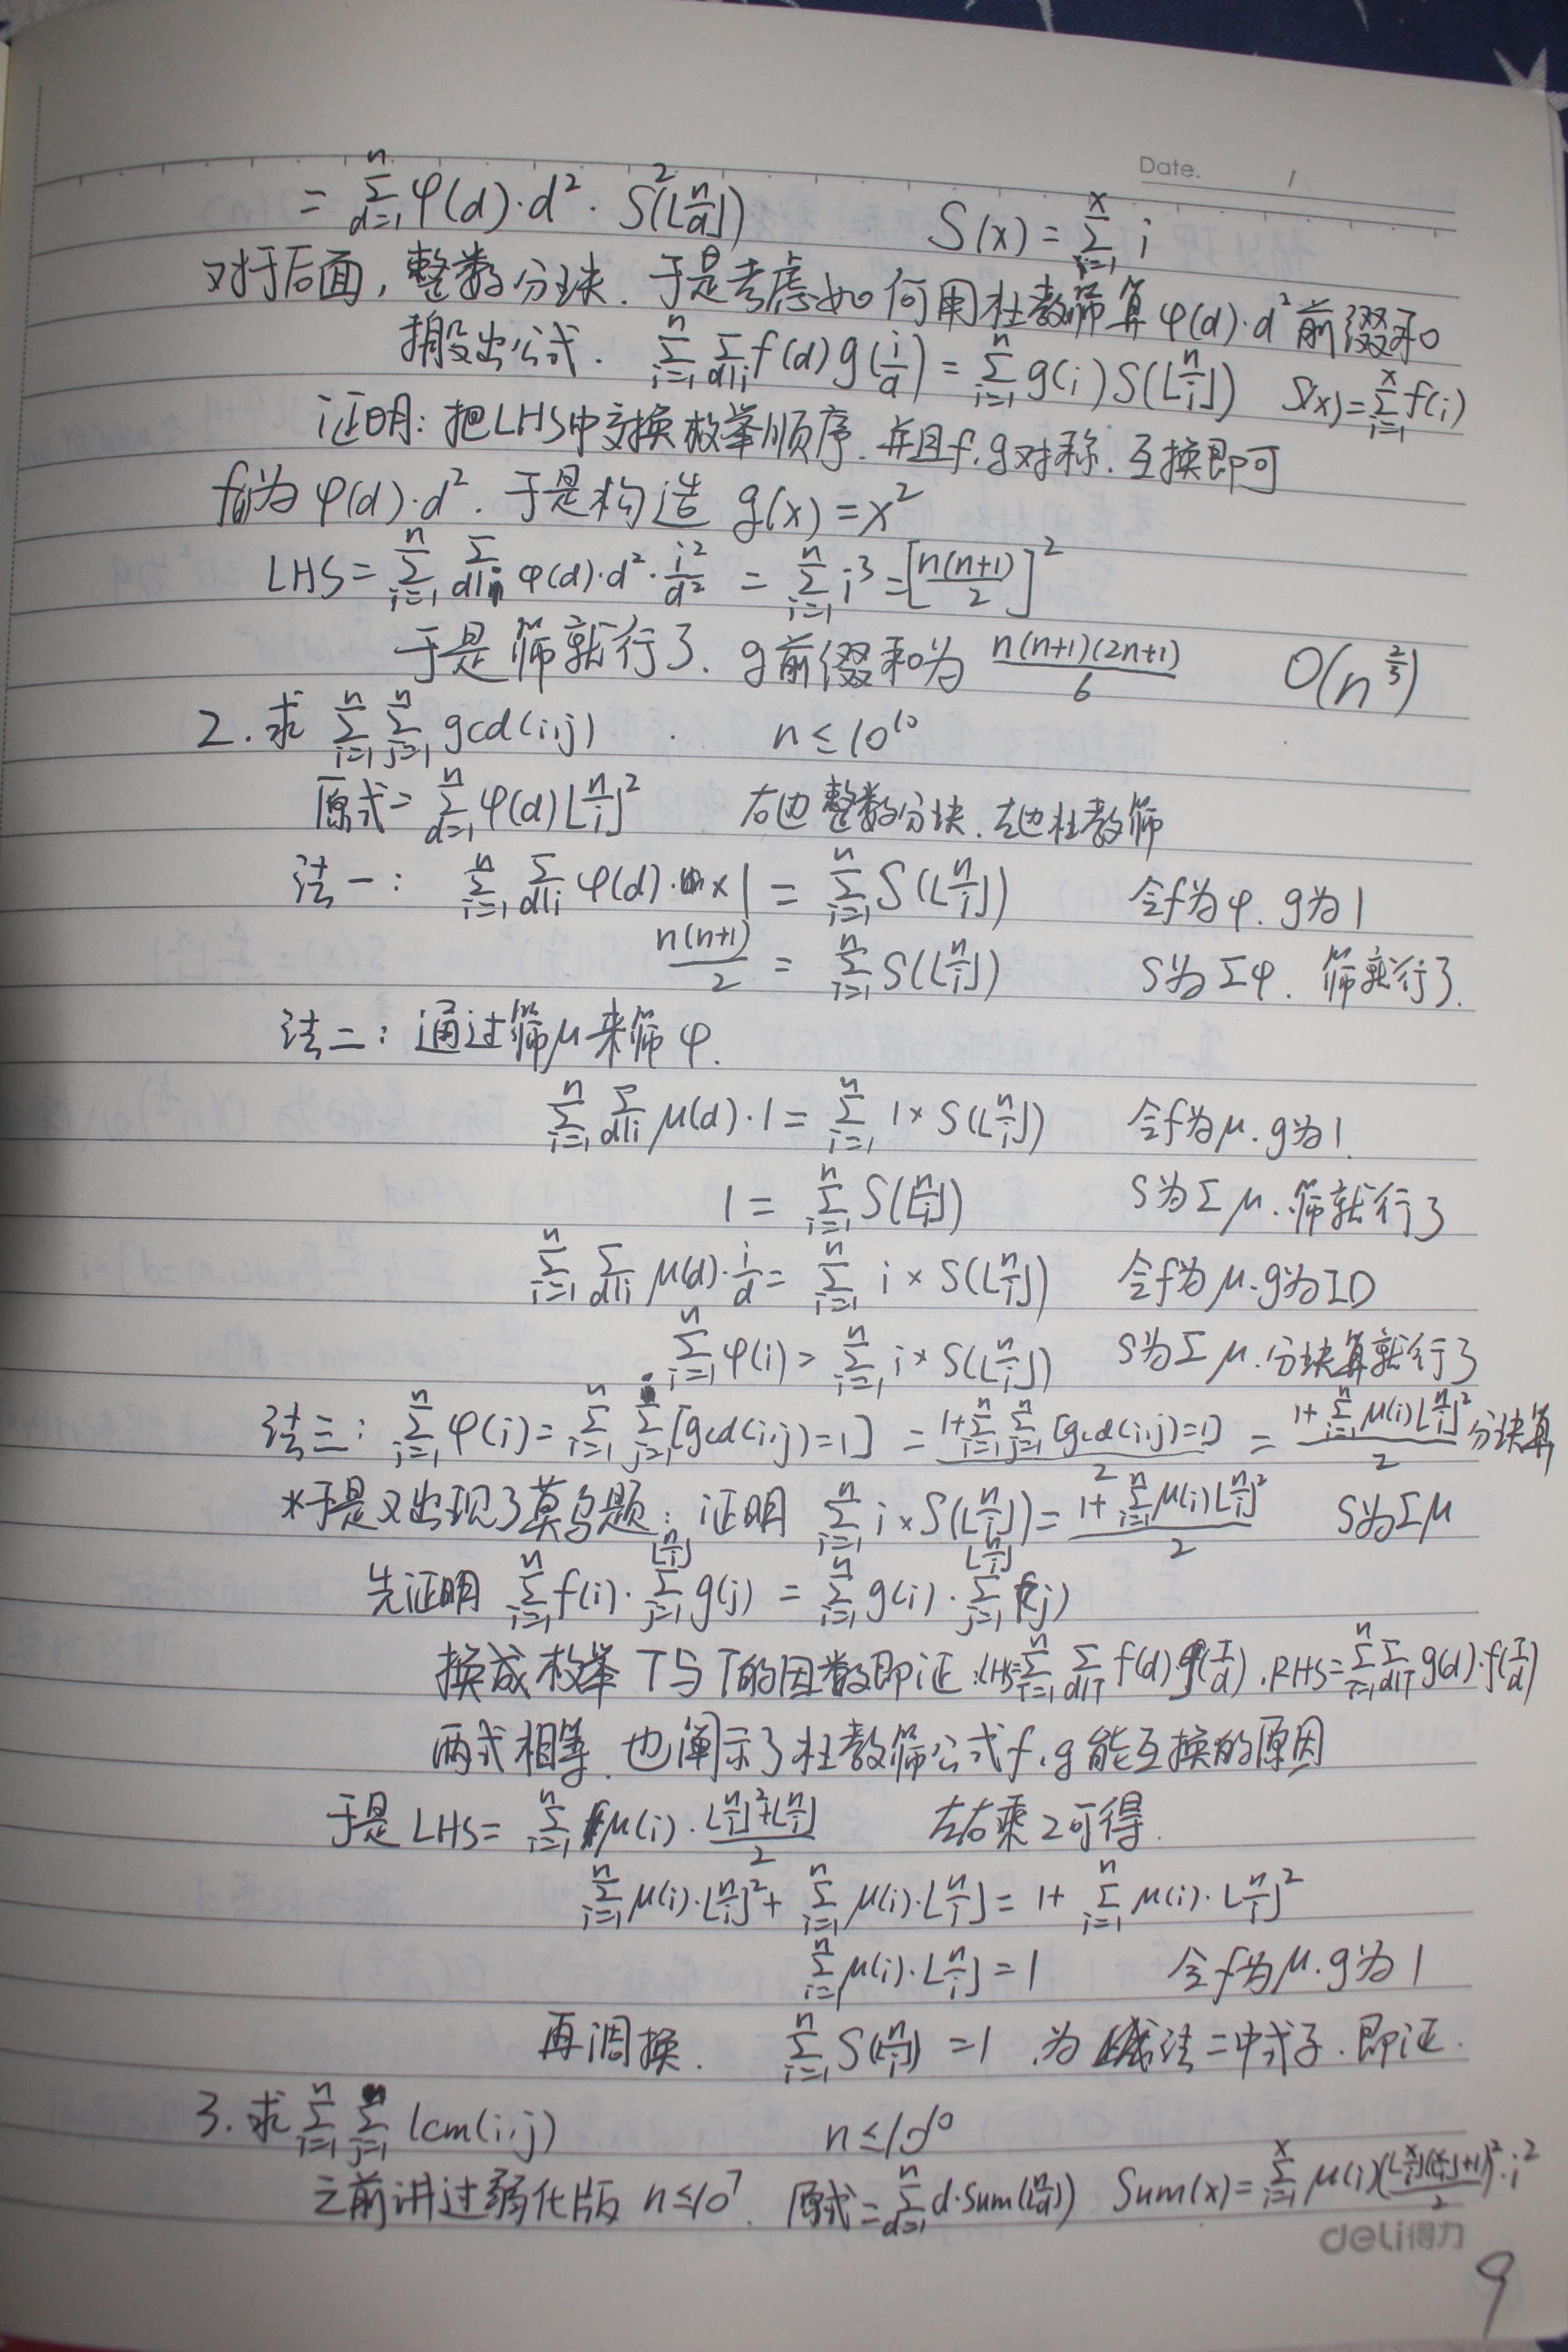 Date. /
= ∑_{d=1}^{n} φ(d)·d²·S²(⌊n/d⌋) S(x) = ∑_{i=1}^{x} i
对于后面, 整数分块. 于是考虑如何用杜教筛算 φ(d)·d² 前缀和
搬出公式. ∑_{i=1}^{n} ∑_{d|i} f(d) g(i/d) = ∑_{i=1}^{n} g(i) S(⌊n/i⌋) S(x) = ∑_{i=1}^{x} f(i)
证明: 把LHS中交换枚举顺序. 并且f.g对称. 互换即可
f为 φ(d)·d². 于是构造 g(x) = x²
LHS = ∑_{i=1}^{n} ∑_{d|i} φ(d)·d²·i²/d² = ∑_{i=1}^{n} i³ = [n(n+1)/2]²
于是筛就行了. g前缀和为 n(n+1)(2n+1)/6 O(n^{2/3})
2. 求 ∑_{i=1}^{n} ∑_{j=1}^{n} gcd(i,j) n ≤ 10^{10}
原式 = ∑_{d=1}^{n} φ(d) ⌊n/i⌋² 右边整数分块. 左边杜教筛
法一: ∑_{i=1}^{n} ∑_{d|i} φ(d)·×1 = ∑_{i=1}^{n} S(⌊n/i⌋) 令f为φ. g为1
n(n+1)/2 = ∑_{i=1}^{n} S(⌊n/i⌋) S为∑φ. 筛就行了.
法二: 通过筛μ来筛φ.
∑_{i=1}^{n} ∑_{d|i} μ(d)·1 = ∑_{i=1}^{n} 1×S(⌊n/i⌋) 令f为μ. g为1.
1 = ∑_{i=1}^{n} S(⌊n/i⌋) S为∑μ. 筛就行了
∑_{i=1}^{n} ∑_{d|i} μ(d)·i/d = ∑_{i=1}^{n} i×S(⌊n/i⌋) 令f为μ. g为ID
∑_{i=1}^{n} φ(i) = ∑_{i=1}^{n} i×S(⌊n/i⌋) S为∑μ. 分块算就行了
法三: ∑_{i=1}^{n} φ(i) = ∑_{i=1}^{n} ∑_{j=1}^{i} [gcd(i,j)=1] = (1+∑_{i=1}^{n} ∑_{j=1}^{n} [gcd(i,j)=1])/2 = (1+∑_{i=1}^{n} μ(i)⌊n/i⌋²)/2 分块算
*于是又出现了莫乌题: 证明 ∑_{i=1}^{n} i×S(⌊n/i⌋) = (1+∑_{i=1}^{n} μ(i)⌊n/i⌋²)/2 S为∑μ
先证明 ∑_{i=1}^{n} f(i)·∑_{j=1}^{⌊n/i⌋} g(j) = ∑_{i=1}^{n} g(i)·∑_{j=1}^{⌊n/i⌋} f(j)
换成枚举T与T的因数即证. LHS = ∑_{T=1}^{n} ∑_{d|T} f(d)·g(T/d). RHS = ∑_{T=1}^{n} ∑_{d|T} g(d)·f(T/d)
两式相等. 也阐示了杜教筛公式f.g能互换的原因
于是LHS = ∑_{i=1}^{n} μ(i)·(⌊n/i⌋²+⌊n/i⌋)/2 左右乘2可得.
∑_{i=1}^{n} μ(i)·⌊n/i⌋² + ∑_{i=1}^{n} μ(i)·⌊n/i⌋ = 1 + ∑_{i=1}^{n} μ(i)·⌊n/i⌋²
∑_{i=1}^{n} μ(i)·⌊n/i⌋ = 1 令f为μ. g为1
再调换. ∑_{i=1}^{n} S(⌊n/i⌋) = 1 .为法二中式子. 即证.
3. 求 ∑_{i=1}^{n} ∑_{j=1}^{n} lcm(i,j) n ≤ 10^{10}
之前讲过弱化版 n ≤ 10⁷. 原式 = ∑_{d=1}^{n} d·Sum(⌊n/d⌋) Sum(x) = ∑_{i=1}^{x} μ(i)(⌊x/i⌋(⌊x/i⌋+1)/2)²·i²
deli得力
9